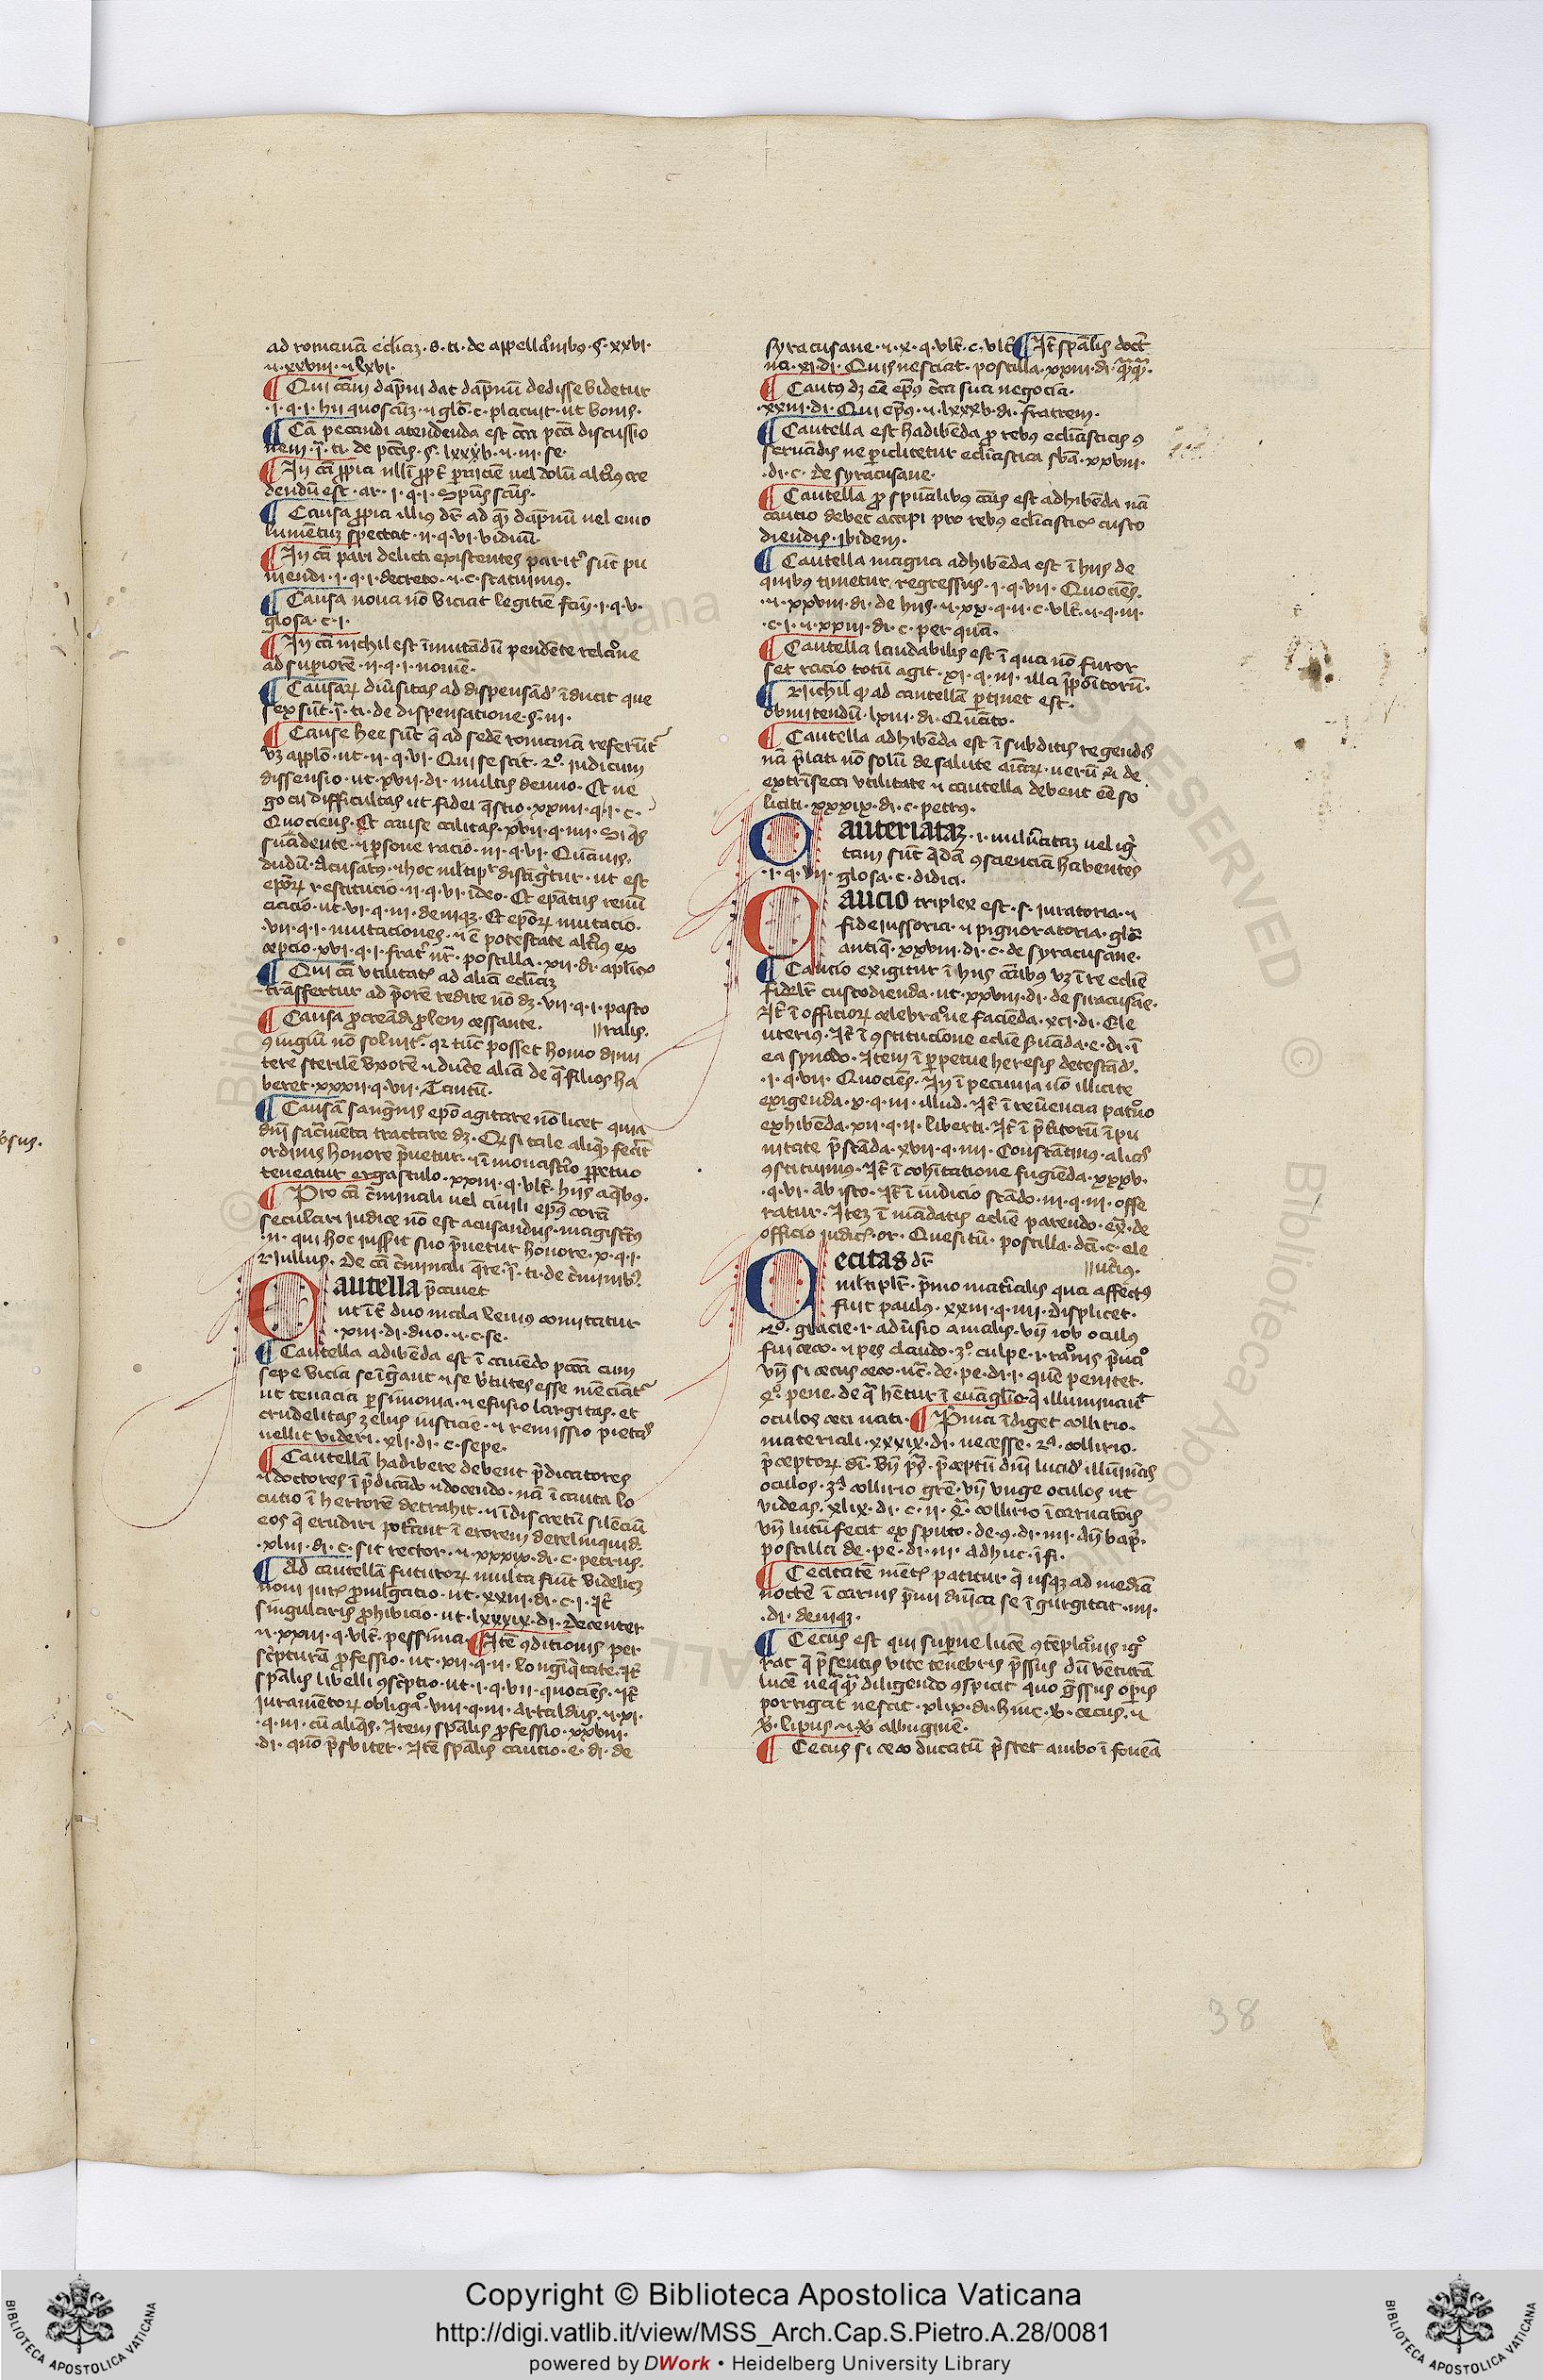 ad romanā ecclīaz · s · ti · de appellac̄ōnibꝰ · §· xxvi ·
⁊ · xxviii · ⁊ lxvi ·
¶ Qui cām dāpni dat dāpnū dedisse videtur
· i · q · i · hii quoscūqꝫ · ⁊ glo͞ · c · placuit · ut bonis ·
¶ Cā peccandi atendenda est circa pctī discussio
nem · j̄ · ti · de pctīs · §· lxxxv · ⁊ · iii · se ·
¶ In cā ꝓpria nllī ꝓpt̄
dendū est · ar · i · q · i · Spūs scūs ·
¶ Causa ꝓpria illius dr̄ ad quē dāpnū vel emo
lumētū spectat · ii · q · vi · biduū ·
¶ In cā pari delicti existentes parit̄ sūt pu
niendi · i · q · i · decreto · ⁊ · c · statuimꝰ ·
¶ Causa noua nō viciat legitīe fcm̄ · i · q · v ·
glosa · c · i ·
¶ In cā nichil est īmutādū pendēte relac̄ōne
ad supiorē · ii · q · i · nomē ·
¶ Causarꝫ diūsitas ad dispensād' īducit que
sex sūt · j̄ · ti · de dispensatione · §· iii ·
¶ Cause hee sūt q̄ ad sedē romanā referūt̄
vꝫ appl̄o · ut · ii · q · vi · Qui se scit · 2º · iudicum
dissensio · ut · xvii · di · multis denuo · Et ne
gocii difficultas ut fidei q̄stio · xxiiii · q · i · c ·
Quociens · Et cause ciuilitas · xvii · q · iiii · Si q̄s
suadente · ⁊ ꝑsone racio · iii · q · vi · Quāuis ·
dudū · Acusatꝰ · ⁊ hoc ml̄tipr̄ distīgtur · ut est
epōrꝫ restitucio · ii · q · vi · ideo · Et epātus renū
ciacio · ut · vi · q · iii · deniqꝫ · Et epōrꝫ mutacio ·
· vii · q · i · mutaciones · ⁊ ē potestate alt̄iꝰ ex
cepcio · xvi · q · i · frat̄ nr̄ · postilla · xii · di · aplīce
¶ Qui cā vtilitatꝭ ad aliā ecclīaz
trāsfertur ad p̄orē redire nō dꝫ · vii · q · i · pasto
¶ Causa ꝓcreādi ꝓlem cessante · //ralis ·
ꝯiugiū nō soluit̄ · qꝛ tūc posset homo dimi
tere sterilē vxorē ⁊ duce aliā de q̄ filios ha
beret · xxxii · q · vii · Tantū ·
¶ Causā sangnis epō agitare nō licet quia
dnī sac̄menta tractare dꝫ · Qꝫ si tale aliqd fecit̄
ordinis honore p̄uetur · ⁊ ī monast̄io ꝑpetuo
teneatur ergastulo · xxiii · q · vlt̄ · hiis a q̄bꝰ ·
¶ Pro cā c̄minali vel ciuili epꝰ corā
seculari iudice nō est acusandus · magistr̄tꝰ
· ⁊ · qui hoc iusscit suo p̄uetur honore · x · q · i ·
Nullus · De cā c̄minali q̄re · j̄ · ti · de c̄minibꝰ
Cautella p̄cauet
ut īt̄ duo mala leuius comittatur
· xiii · di · duo · ⁊ · c · se ·
¶ Cautella adibēda est ī cauēdo pctā cum
sepe vicia se īgāut ⁊ se v̄tutes esse mēciāt̄
ut tenacia ꝑsimonia · ⁊ efusio largitas · et
crudelitas zelus iusticie · ⁊ remissio pietas
vellit videri · xli · di · c · sepe ·
¶ Cautellā hadibere debent p̄dicatores
⁊ doctores ī p̄dicādo ⁊ docendo · nā ī cauta lo
cutio ī herrorē detrahit · ⁊ īdiscretū silēciū
eos q̄ erudiri pot̄ant ī erorem derelinquid ·
· xliii · di · c · sit rector · ⁊ · xxxix · di · c · petrus ·
¶ Ad cautellā futurorꝫ multa fiūt videlicꝫ
noui iurꝭ ꝓmlgatio · ut · xxiii · di · c · i · It̄
singularis ꝓhibicio · ut · lxxxix · di · Decenter
⁊ · xxiii · q · vlt̄ · pessima · ¶ Itē ꝯditionis per
scpturā ꝓfessio · ut · xii · q · ii · longīq̄tate · It̄
spālis libelli ꝯsc̄ptio · ut · i · q · vii · quociēs · It̄
iuramētorꝫ obliga͞o · viii · q · iii · Artaldus · ⁊ · xi ·
· q · iii · cū aliq̄s · Item spālis ꝓfessio · xxviii ·
· di · quō p̄sbiter · Itē spālis cautio · e · di · de
syracusane · ⁊ · x · q · vlt̄ · c · vlt̄ · ¶ It̄ spālis doct̄
na · xi · di · Quis nesciat · postilla · xxiii · di · q̄q̄ ·
¶ Cautꝰ dꝫ eē epꝰ c̄ca sua negocia ·
· xxiii · di · Qui epꝰ · ⁊ · lxxxv · di · fratrem ·
¶ Cautella est hadibēda ꝓ rebꝰ ecclīasticis ꝯ
seruādis ne ꝑiclitetur ecclīastica sb̄a · xxviii ·
· di · c · de syracusane ·
¶ Cautella ꝓ spūalibꝰ cāis est adhibēda nā
cautio debet accipi pro rebꝰ ecclīasticꝭ custo
diendis · ibidem ·
¶ Cautella magna adhibēda est ī hiis de
quibꝰ timetur regressus · i · q · vii · Quociēs ·
· ⁊ · xxviii · di · de hiis · ⁊ · xx · q · ii · c · vlt̄ · ⁊ · q · iii ·
· c · i · ⁊ · xxiii · di · c · per quā ·
¶ Cautella laudabilis est ī qua nō furor
set racio totū agit · xi · q · iii · illa p̄poītorū ·
¶ Nichil qꝫ ad cautellā ꝑtinet est ·
obmitendū · lxiii · di · Quāto ·
¶ Cautella adhibēda est ī subditis regendis
nā p̄lati nō solū de salute aīarꝫ · uerū ⁊ de
extrīseca vtilitate ⁊ cautella debent eē so
liciti · xxxix · di · c · petrꝰ ·
Cauteriataꝫ · i · mlūatam vel iḡ
tam sūt q̄dā ꝯscienciā habentes
· i · q · vii · glosa · c · didici ·
Caucio triplex est · s · iuratoria · ⁊
fideiussoria · ⁊ pignoratoria · glo͞
antiq̄ · xxviii · di · c · de syracusane ·
¶ Caucio exigitur ī hiis cāibꝰ vꝫ ī re ecclīe
fidelr̄ custodienda · ut · xxviii · di · de siracusāe ·
It̄ ī officiorꝫ celebrac̄ōne faciēda · xci · di · Ele
uterius · It̄ ī ꝯstitucione ecclīe s̄uāda · e · di · ī
ea synodo · Item ī ꝑpetue heresis detestād' ·
· i · q · vii · Quociēs · In ī pecunia nō illicite
exigenda · x · q · iii · illud · It̄ ī reūencia patrōo
exhibēda · xii · q · ii · liberti · It̄ ī p̄titorū īpu
nitate p̄stāda · xvii · q · iiii · Constātinꝰ · alias
ꝯstituimꝰ · It̄ ī cohītatione fugiēda · xxxv ·
· q · vi · ab isto · It̄ ī iudicio stādo · iii · q · iii · offe
ratur · Iteꝫ ī mādatis ecclīe parendo · ex̄ · de
officio iudicꝭ · or · Quesitū · postilla · dcā · c · ele
Cecitas dr̄ //ut̄iꝰ ·
ml̄tiplr̄ · p̄mo mat̄ialis qua affectꝰ
fuit paulꝰ · xxiii · q · iiii · displicet ·
2º · gracie · ⁊ adūsio aīalis · vn̄ iob oculꝰ
fui ceco · ⁊ pes claudo · 3º · culpe · ⁊ · rac̄ōnis p̄uac̄o
vn̄ si cecus ceco · uc̄ · de · pe · di · i · quē penitet ·
4º · pene · de q̄ hētur ī euāglio q̄ illuminauit
oculos ceci nati · ¶ Prima īdiget collirio ·
materiali · xxxix · di · necesse · 2ª · collirio ·
p̄ceptorꝫ · di̅ · vn̄ ps̄ · p̄ceptū dnī lucid' illūinās
oculos · 3ª collirio gr̄e · vn̄ vnge oculos ut
videas · xlix · di · c · ii · 4ª · collirio īcarnac̄ōis
vn̄ lutū fecit ex sputo · de · ꝯ · di · iiii · Añ bap̄ ·
postilla de · pe · di · iii · adhuc · ī fi ·
¶ Cecitatē mētꝭ patitur q̄ usqꝫ ad mediā
noctē ī carnis p̄uii dn̄ica se īgurgitat · iiii ·
· di · deniqꝫ ·
¶ Cecus est qui supne lucē ꝯtēplac̄ōnis ig͞o
rat q̄ p̄sentis vite tenebris p̄ssus dū vēturā
lucē neq̄q̄ diligendo ꝯspicit quo ḡssus opis
porrigat nescit · xlix · di · hinc · v̄ · cecus · ⁊
v̄ · lipus · ⁊ v̄ albuginē ·
¶ Cecus si ceco ducatū p̄stet ambo ī foueā
38
Copyright © Biblioteca Apostolica Vaticana
http://digi.vatlib.it/view/MSS_Arch.Cap.S.Pietro.A.28/0081
powered by DWork • Heidelberg University Library
BIBLIOTECA APOSTOLICA VATICANA
BIBLIOTECA APOSTOLICA VATICANA